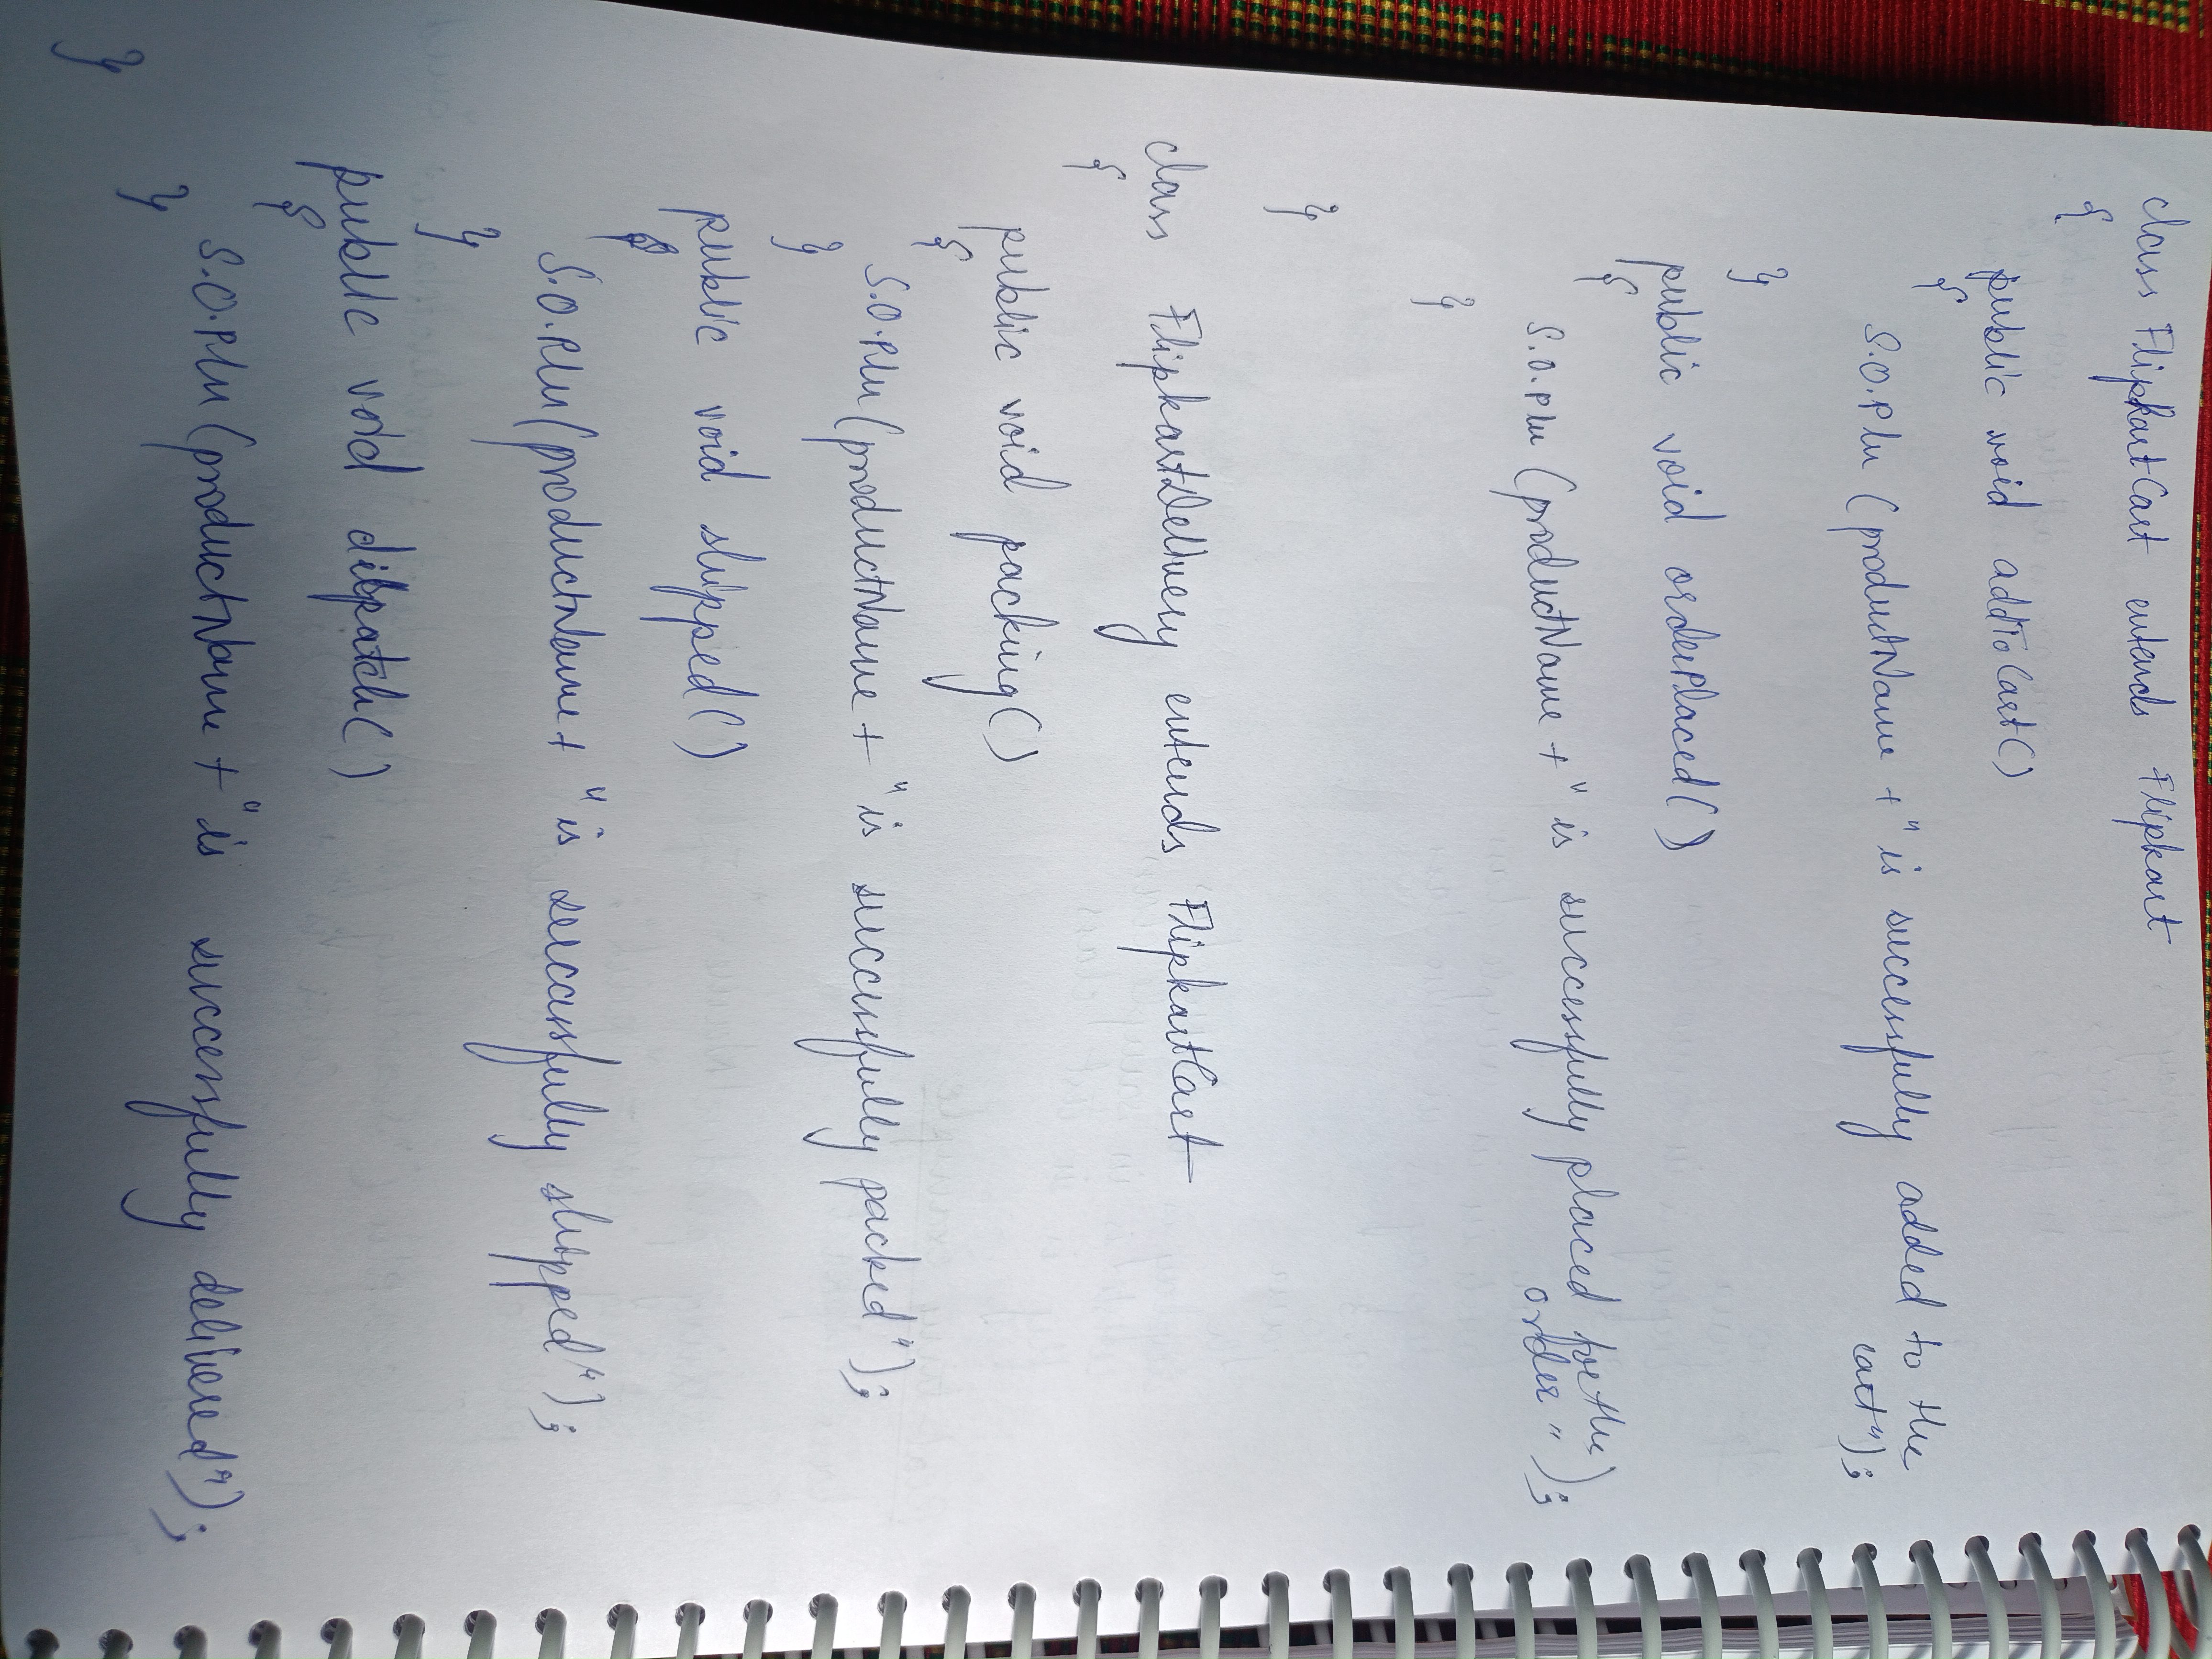 class FlipkartCart extends Flipkart
{
public void addToCart()
{
S.O.Pln (productName + " is successfully added to the
cart");
}
public void orderPlaced()
{
S.O.Pln (productName + " is successfully placed for the)
order");
}
}
class FlipkartDelivery extends FlipkartCart
{
public void packing()
{
S.O.Pln (productName + " is successfully packed");
}
public void shipped()
{
S.O.Pln (productName + " is successfully shipped");
}
public void dispatch()
{
S.O.Pln (productName + " is successfully delivered");
}
}